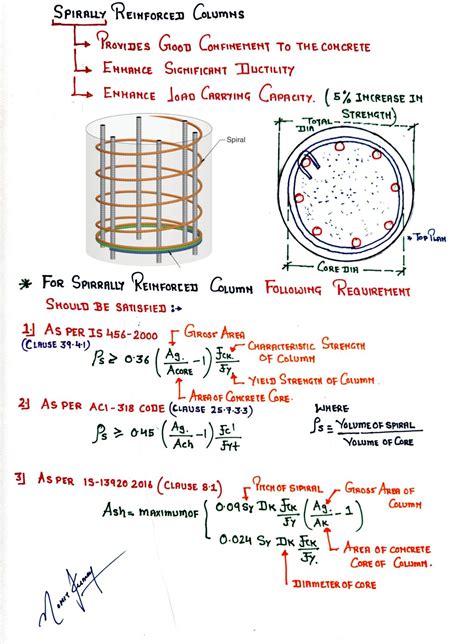 SPIRALLY REINFORCED COLUMNS
PROVIDES GOOD CONFINEMENT TO THE CONCRETE
ENHANCE SIGNIFICANT DUCTILITY
ENHANCE LOAD CARRYING CAPACITY. (5% INCREASE IN
STRENGTH)
TOTAL
DIA
Spiral
* TOP PLAN
CORE DIA
* FOR SPIRRALLY REINFORCED COLUMN FOLLOWING REQUIREMENT
SHOULD BE SATISFIED :→
1.] AS PER IS 456-2000
(CLAUSE 39.4.1)
GROSS AREA
CHARACTERISTIC STRENGTH
OF COLUMN
ρs ≥ 0.36 (Ag/Acore - 1) fck/fy
YIELD STRENGTH OF COLUMN.
AREA OF CONCRETE CORE.
2] AS PER ACI-318 CODE (CLAUSE 25.7.3.3)
ρs ≥ 0.45 (Ag/Ach - 1) fc'/fyt
WHERE
ρs = VOLUME OF SPIRAL / VOLUME OF CORE
3] AS PER IS-13920 2016 (CLAUSE 8.1)
PITCH OF SPIRAL
GROSS AREA OF
COLUMN
Ash = MAXIMUM OF { 0.09 Sy Dk fck/fy (Ag/Ak - 1)
0.024 Sy Dk fck/fy.
AREA OF CONCRETE
CORE OF COLUMN.
DIAMETER OF CORE